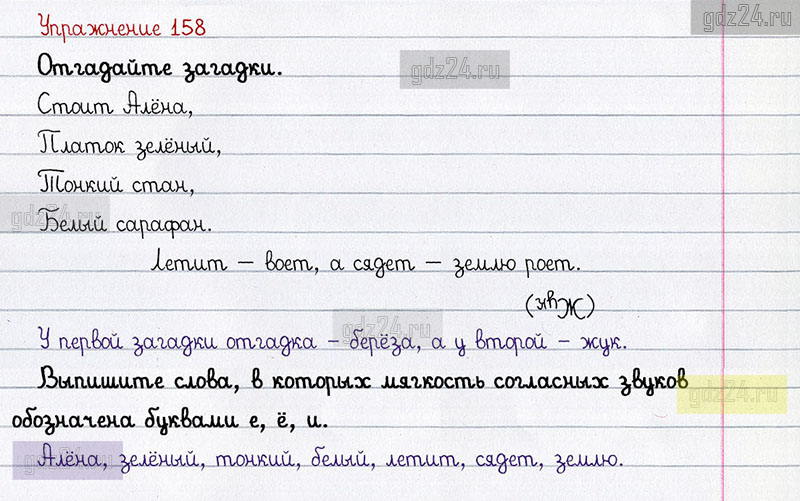 Упражнение 158
gdz24.ru
Отгадайте загадки.
gdz24.ru
Стоит Алёна,
Платок зелёный,
Тонкий стан,
gdz24.ru
Белый сарафан.
Летит – воет, а сядет – землю роет.
(Жук)
gdz24.ru
У первой загадки отгадка – берёза, а у второй – жук.
Выпишите слова, в которых мягкость согласных звуков
gdz24.ru
обозначена буквами е, ё, и.
Алёна, зелёный, тонкий, белый, летит, сядет, землю.
gdz24.ru